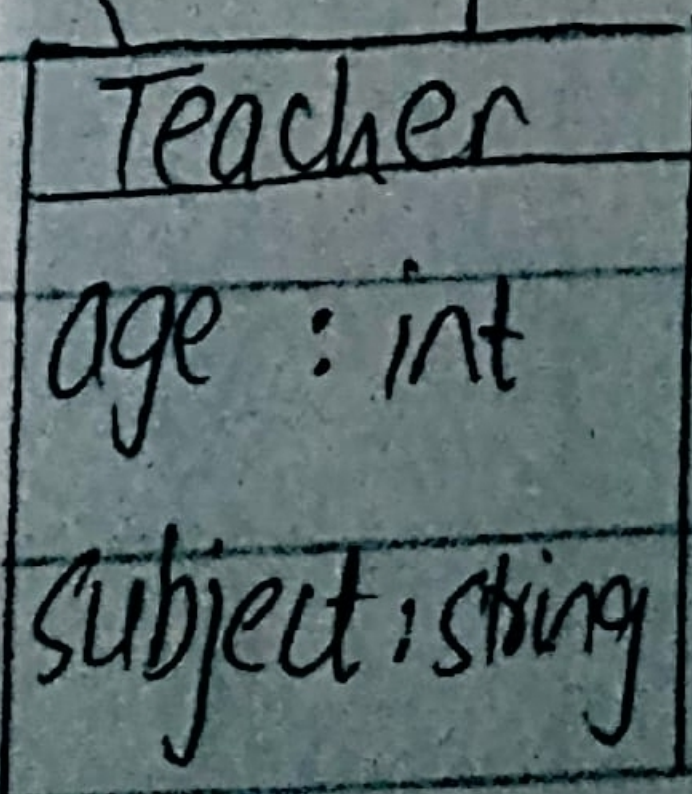 Teacher
age : int
subject : string